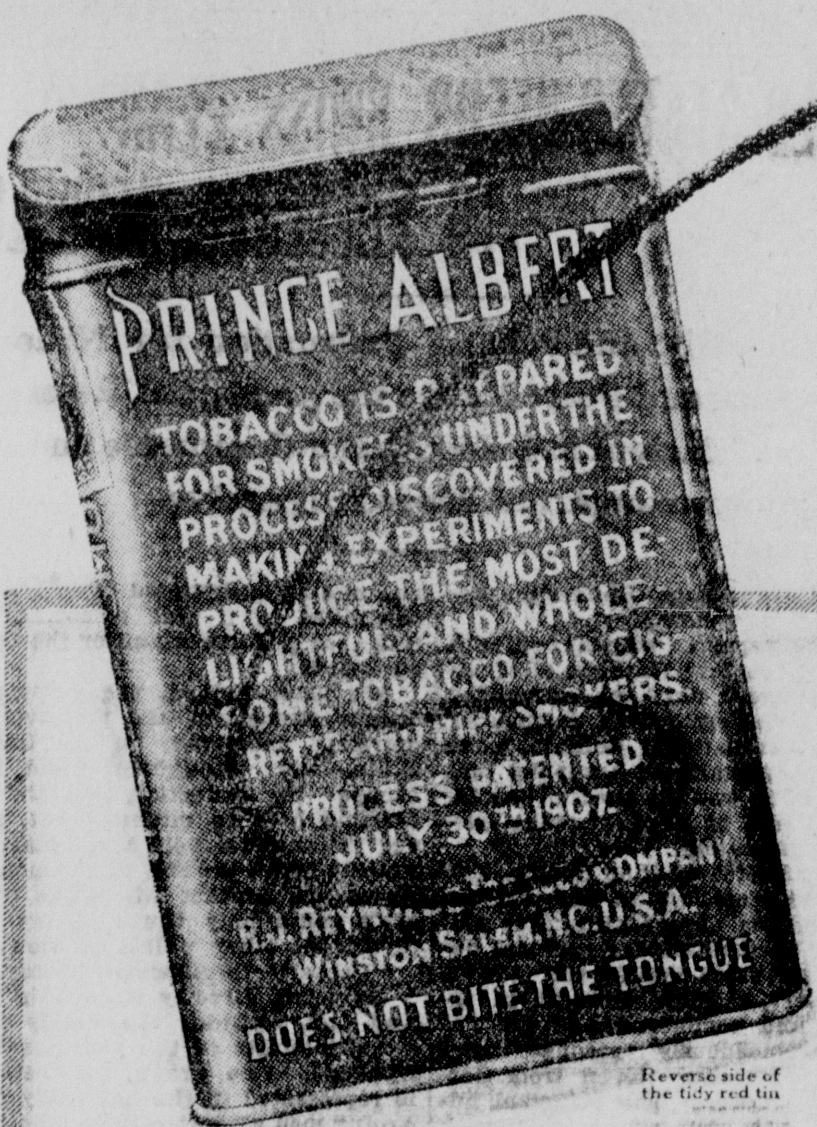 PRINCE ALBERT
TOBACCO IS PREPARED
FOR SMOKERS UNDER THE
PROCESS DISCOVERED IN
MAKING EXPERIMENTS TO
PRODUCE THE MOST DE-
LIGHTFUL AND WHOLE-
SOME TOBACCO FOR CIG-
RETTE AND PIPE SMOKERS.
PROCESS PATENTED
JULY 30TH 1907.
R.J. REYNOLDS TOBACCO COMPANY
WINSTON SALEM, N.C. U.S.A.
DOES NOT BITE THE TONGUE
Reverse side of
the tidy red tin